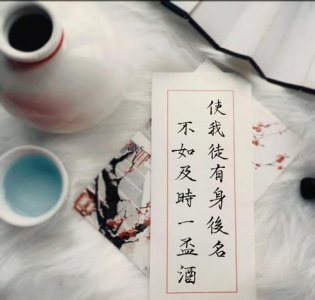 使我徒有身後名
不如及時一盃酒